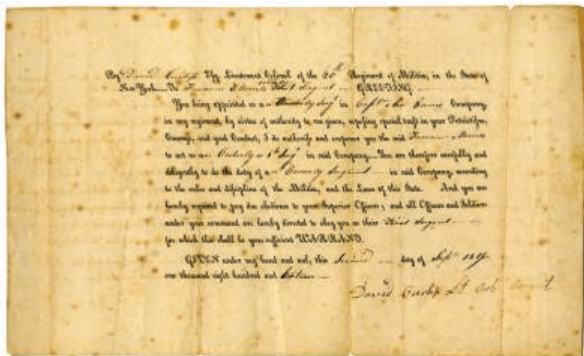 By David Esq. Lieutenant Colonel of the 20th Regiment of Militia, in the State of
New-York.—To First Sergeant GREETING.
You being appointed as a Orderly Sergt in Capt. Company,
in my regiment, by virtue of authority to me given, reposing special trust in your Patriotism,
Courage, and good Conduct, I do authorise and empower you the said
to act as an Orderly or 1st Sergt in said Company.—You are therefore carefully and
diligently to do the duty of a Sergeant in said Company, according
to the rules and discipline of the Militia, and the Laws of this State. And you are
hereby required to pay due obedience to your Superior Officers; and all Officers and Soldiers
under your command are hereby directed to obey you as their First Sergeant
for which this shall be your sufficient WARRANT.
GIVEN under my hand and seal, this Second day of Sept.
one thousand eight hundred and
David Lt Col